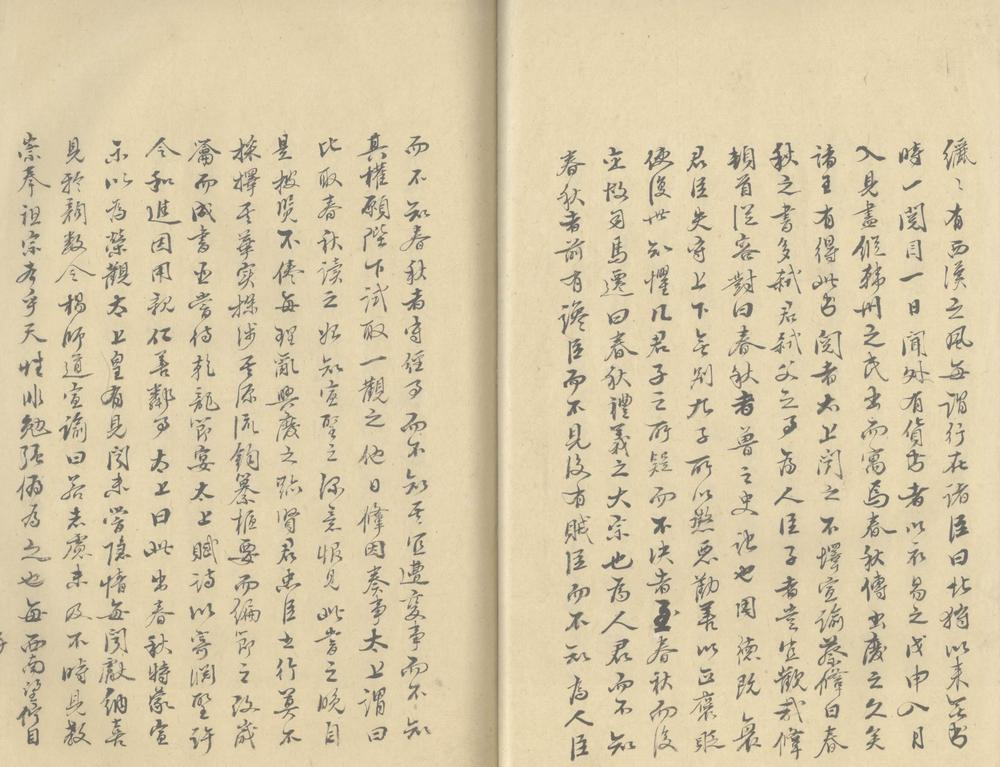 纚〻有西漢之風每謂行在諸臣曰北狩以來無書
時一閱目一日聞外有貨書者以衣易之戊申八月
入見盡徙韓州之民出而寓焉春秋傳出廢之久矣
諸王有得此書閱者太上聞之不懌宣諭蔡鞗曰春
秋之書多弒君弒父之事為人臣子者豈宜歡哉鞗
頓首從容對曰春秋者魯之史記也周德既衰
君臣失守上下無別九子所以懲惡勸善以正褒貶
使後世知懼凡君子之所疑而不決者至春秋而後
定故司馬遷曰春秋禮義之大宗也為人君而不知
春秋者前有讒臣而不見後有賊臣而不知為人臣
而不知春秋者守經事而不知其宜遭變事而不知
其權願陛下試取一觀之他日鞗因奏事太上謂曰
比取春秋讀之始知宣聖之深意恨見此書之晚自
是披覽不倦每理亂興廢之跡賢君忠臣之行莫不
採擇其華實探涉其源流鉤纂樞要而編節之改歲
籥而成書丞嘗待乾龍節宴太上賦詩以寄淵聖許
令和進因用親仁善鄰事太上曰此出春秋特蒙宣
示以為榮觀太上皇有見聞未嘗隱情每聞獻納喜
見於顏數令楊師道宣諭曰若志慮未及不時見教
崇奉祖宗孝乎天性非勉強偽為之也每西南望